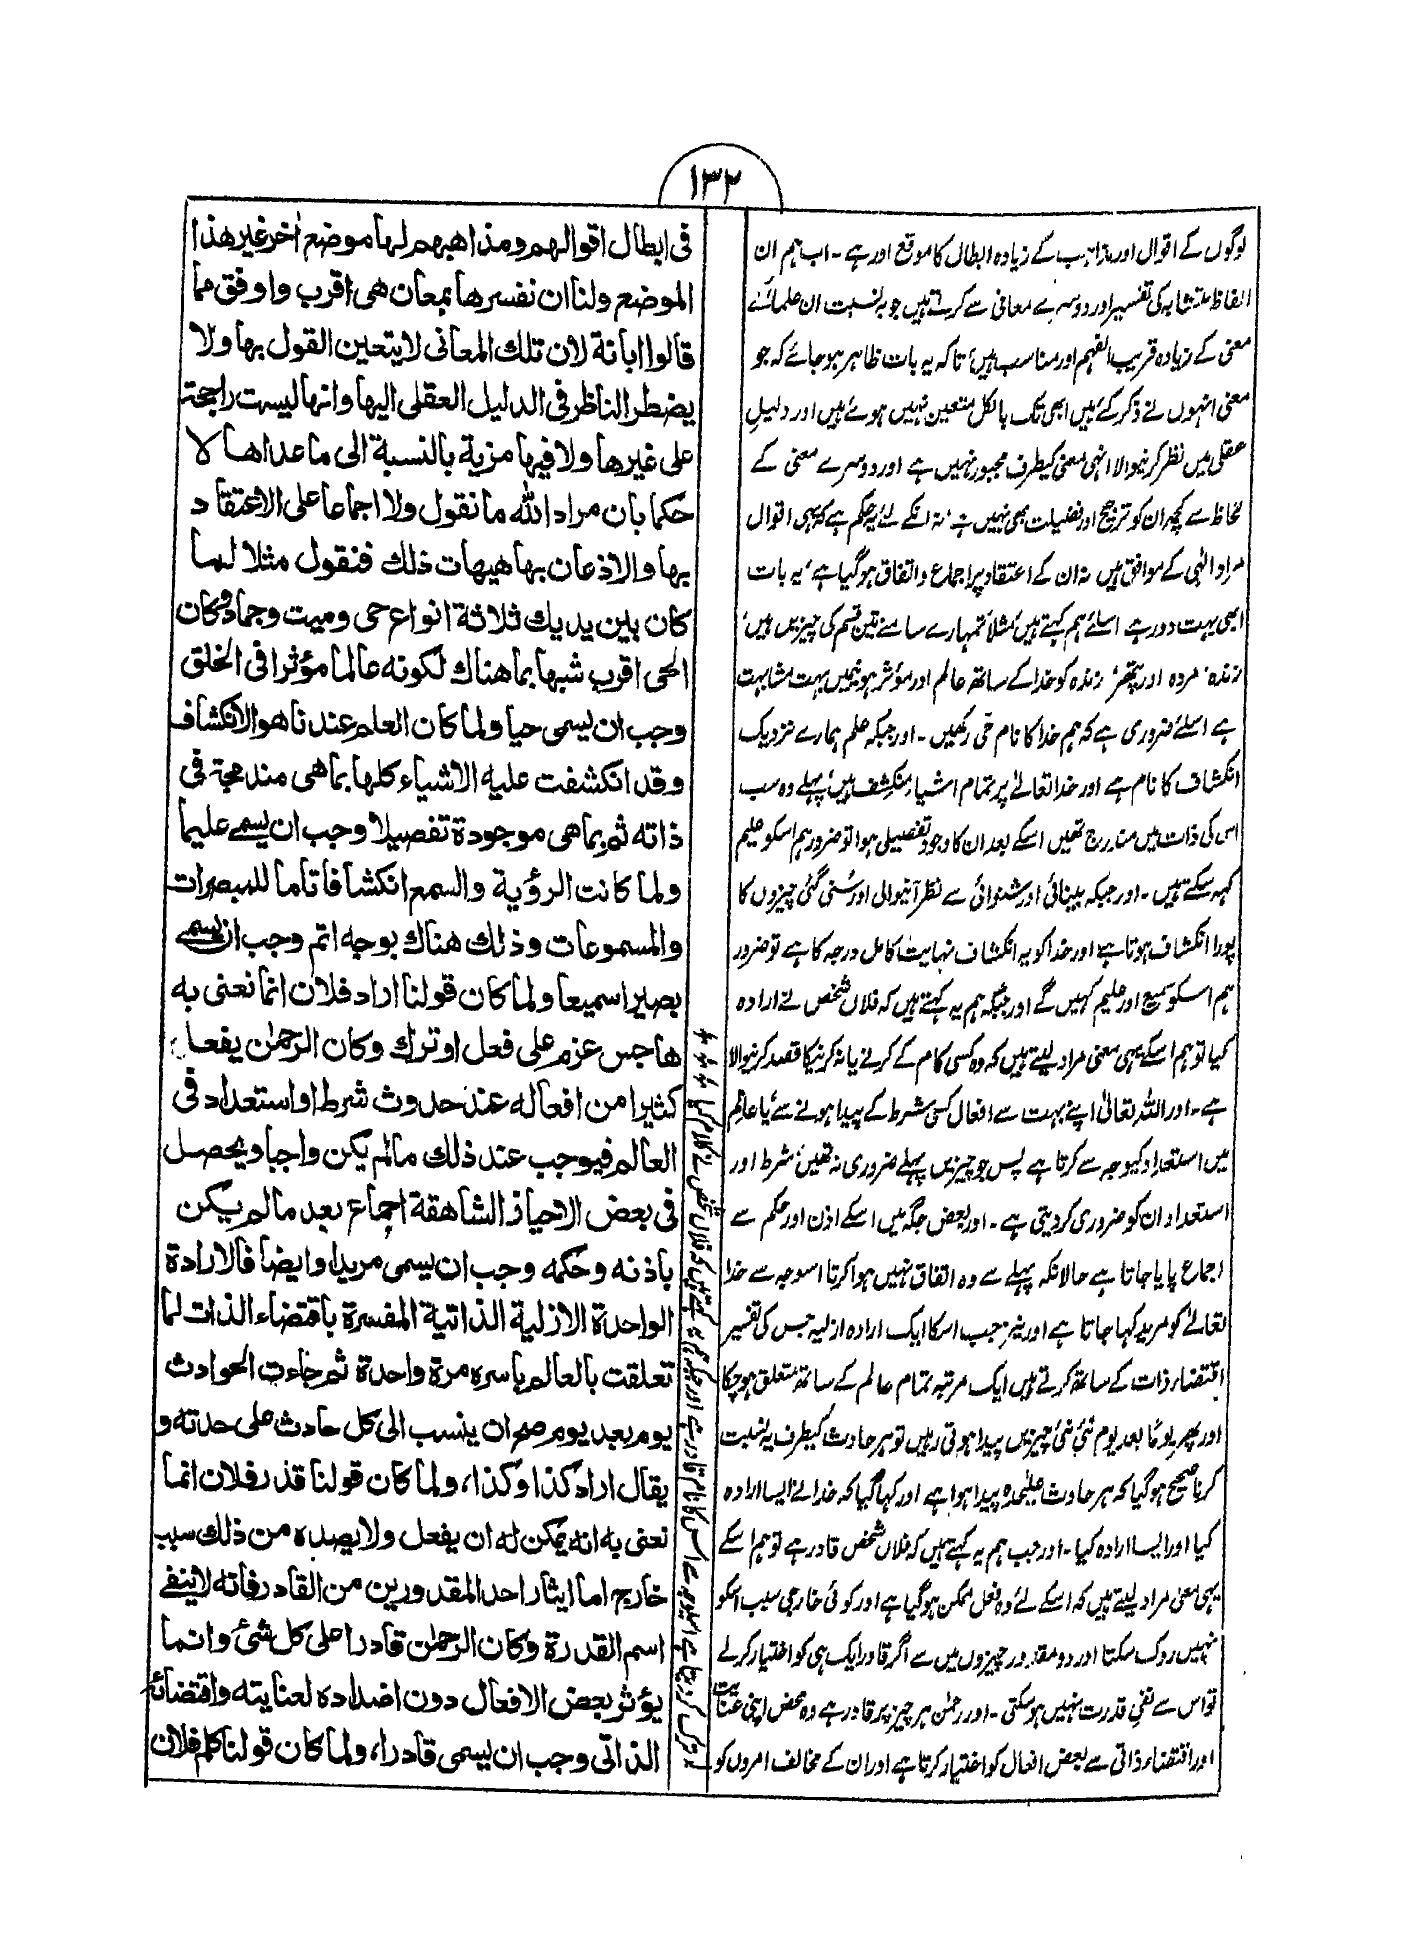 ۱۳۲
لوگوں کے اقوال اور مذاہب کے زیادہ ابطال کا موقع اور ہے ۔ اب ہم ان
الفاظ متشابہ کی تفسیر اور دوسرے معانی سے کرتے ہیں جو بہ نسبت ان علماء کے
معنی کے زیادہ قریب الفہم اور مناسب ہیں، تاکہ یہ بات ظاہر ہو جائے کہ جو
معنی انہوں نے ذکر کئے ہیں ابھی تک بالکل متعین نہیں ہوئے ہیں اور دلیل
عقلی میں نظر کرنیوالا انہی معنی کیطرف مجبور نہیں ہے اور دوسرے معنی کے
لحاظ سے کچھ ان کو ترجیح اور فضیلت بھی نہیں ہے، نہ انکے لئے یہ حکم ہے کہ یہی اقوال
مراد الٰہی کے موافق ہیں نہ ان کے اعتقاد پر اجماع و اتفاق ہو گیا ہے، یہ بات
ابھی بہت دور ہے اسلئے ہم کہتے ہیں، مثلاً تمہارے سامنے تین قسم کی چیزیں ہیں،
زندہ، مردہ اور پتھر، زندہ کو خدا کے ساتھ عالم اور مؤثر ہونیمیں بہت مشابہت
ہے اسلئے ضروری ہے کہ ہم خدا کا نام حی رکھیں ۔ اور جبکہ علم ہمارے نزدیک
انکشاف کا نام ہے اور خدا تعالےٰ پر تمام اشیاء منکشف ہیں، پہلے وہ سب
اس کی ذات میں مندرج تھیں اسکے بعد ان کا وجود تفصیلی ہوا تو ضرور ہم اسکو علیم
کہہ سکتے ہیں ۔ اور جبکہ بینائی اور شنوائی سے نظر آنیوالی اور سُنی گئی چیزوں کا
پورا انکشاف ہوتا ہے، اور خدا کو یہ انکشاف نہایت کامل درجہ کا ہے تو ضرور
ہم اسکو سمیع اور علیم کہیں گے اور جبکہ ہم یہ کہتے ہیں کہ فلاں شخص نے ارادہ
کیا تو ہم اسکے یہی معنی مراد لیتے ہیں کہ وہ کسی کام کے کرنے یا نہ کرنیکا قصد کرنیوالا
ہے ۔ اور اللہ تعالیٰ اپنے بہت سے افعال کسی شرط کے پیدا ہونے سے، یا عالم
میں استعداد کیوجہ سے کرتا ہے پس جو چیزیں پہلے ضروری نہ تھیں، شرط اور
استعداد ان کو ضروری کر دیتی ہے ۔ اور بعض جگہ میں اسکے اذن اور حکم سے
اجماع پایا جاتا ہے حالانکہ پہلے سے وہ اتفاق نہیں ہوا کرتا اسوجہ سے خدا
تعالےٰ کو مرید کہا جاتا ہے اور نیز جب اسکا ایک ارادہ ازلیہ جس کی تفسیر
اقتضاء ذات کے ساتھ کرتے ہیں ایک مرتبہ تمام عالم کے ساتھ متعلق ہو چکا
اور پھر یوماً بعد یوم نئی نئی چیزیں پیدا ہوتی رہیں تو ہر حادث کیطرف یہ نسبت
کرنا صحیح ہو گیا کہ ہر حادث علیٰحدہ پیدا ہوا ہے اور کہا گیا کہ خدا نے ایسا ارادہ
کیا اور ایسا ارادہ کیا ۔ اور جب ہم یہ کہتے ہیں کہ فلاں شخص قادر ہے تو ہم اسکے
یہی معنی مراد لیتے ہیں کہ اسکے لئے وہ فعل ممکن ہو گیا ہے اور کوئی خارجی سبب اسکو
نہیں روک سکتا اور دو مقدور چیزوں میں سے اگر قادر ایک ہی کو اختیار کرلے
تو اس سے نفیِ قدرت نہیں ہو سکتی ۔ اور رحمٰن ہر چیز پر قادر ہے وہ محض اپنی عنایت
اور اقتضاء ذاتی سے بعض افعال کو اختیار کرتا ہے اور ان کے مخالف امروں کو
ترک کر دیتا ہے اسیلوجہ سے اس کا نام قادر ہے اور جبکہ ہم یہ کہتے ہیں کہ فلاں شخص نے کلام کیا
فی ابطال اقوالهم ومذاهبهم لها موضع اٰخر غير هذا
الموضع ولنا ان نفسرها بمعان هی اقرب و اوفق مما
قالوا ابانة لان تلك المعانی لا يتعين القول بها ولا
يضطر الناظر فی الدليل العقلی اليها وانها ليست راجحة
علی غيرها ولا فيها مزية بالنسبة الی ما عداها لا
حكما بان مراد الله ما نقول ولا اجماعا علی الاعتقاد
بها والاذعان بها هيهات ذلك فنقول مثلا لما
كان بين يديك ثلاثة انواع حی وميت وجماد وكان
الحی اقرب شبها بما هناك لكونه عالما مؤثرا فی الخلق
وجب ان يسمی حيا ولما كان العلم عندنا هو الانكشاف
وقد انكشفت عليه الاشياء كلها بما هی مندمجة فی
ذاته ثم بما هی موجودة تفصيلا وجب ان يسمی عليما
ولما كانت الرؤية والسمع انكشافا تاما للمبصرات
والمسموعات وذلك هناك بوجه اتم وجب ان يسمی
بصيرا سميعا ولما كان قولنا اراد فلان انما نعنی به
هاجس عزم علی فعل او ترك وكان الرحمٰن يفعل
كثيرا من افعاله عند حدوث شرط او استعداد فی
العالم فيوجب عند ذلك ما لم يكن واجبا ويحصل
فی بعض الاحياز الشاهقة اجماع بعد ما لم يكن
باذنه وحكمه وجب ان يسمی مريدا وايضا فالارادة
الواحدة الازلية الذاتية المفسرة باقتضاء الذات لما
تعلقت بالعالم باسره مرة واحدة ثم جاءت الحوادث
يوم بعد يوم صح ان ينسب الی كل حادث علی حدته و
يقال اراد كذا وكذا، ولما كان قولنا قدر فلان انما
نعنی به انه يمكن له ان يفعل ولا يصده من ذلك سبب
خارج اما ايثار احد المقدورين من القادر فانه لا ينفی
اسم القدرة وكان الرحمٰن قادرا علی كل شئ وانما
يؤثر بعض الافعال دون اضداده لعنايته واقتضائه
الذاتی وجب ان يسمی قادرا، ولما كان قولنا كلم فلان